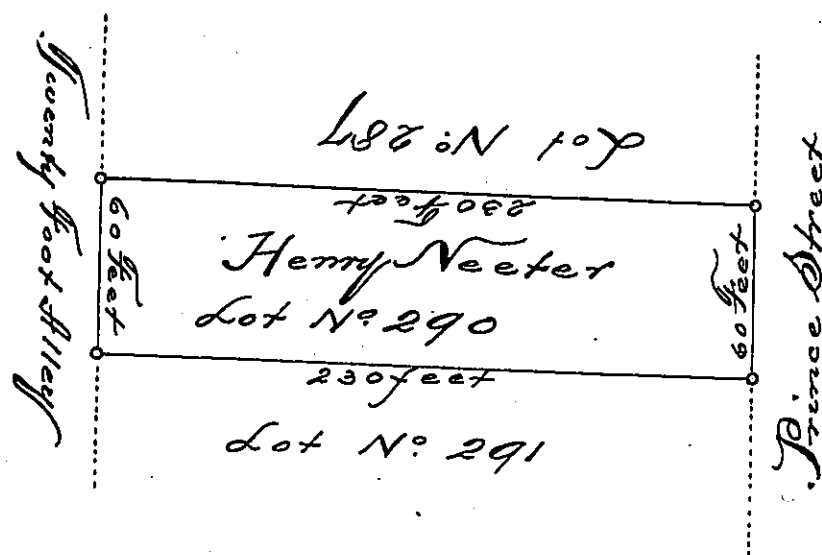 Twenty Foot Alley
Lot No: 287
230 Feet
60 Feet
Henry Neeter
Lot No: 290
60 Feet
230 feet
Lot No: 291
Prince Street